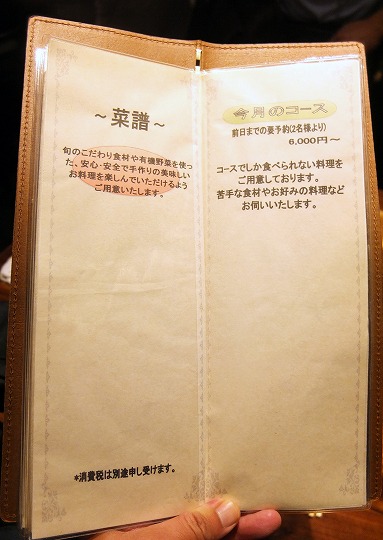 ～菜譜～
旬のこだわり食材や有機野菜を使っ
た、安心・安全で手作りの美味しい
お料理を楽しんでいただけるよう
ご用意いたします。
*消費税は別途申し受けます。
今月のコース
前日までの要予約(2名様より)
6,000円～
コースでしか食べられない料理を
ご用意しております。
苦手な食材やお好みの料理など
お伺いいたします。